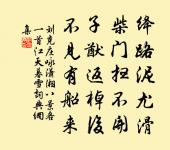 绛路泥尤滑
柴门扫不开
子猷返棹后
不见有船来
刘克庄咏潇湘八景各
一首江天暮雪词典网
集